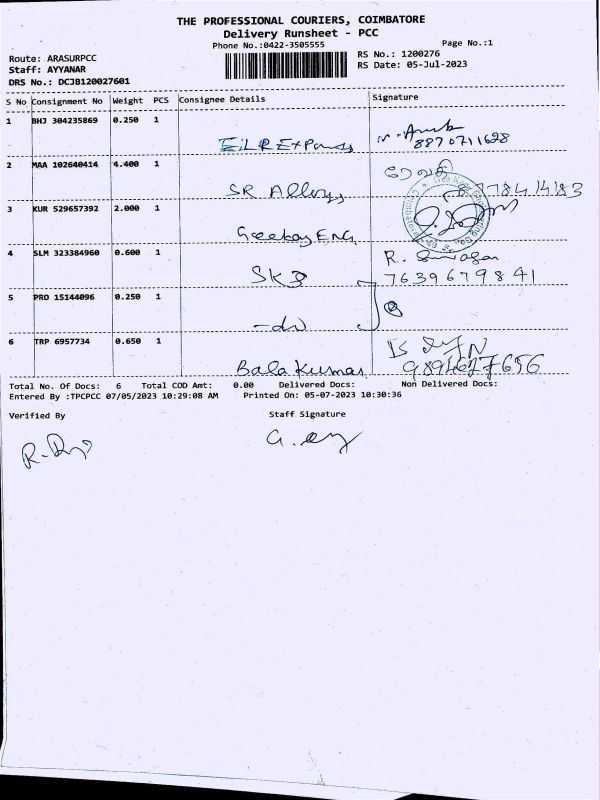 THE PROFESSIONAL COURIERS, COIMBATORE
Delivery Runsheet - PCC
Phone No.:0422-3505555
Page No.:1
Route: ARASURPCC
RS No.: 1200276
Staff: AYYANAR
RS Date: 05-Jul-2023
DRS No.: DCJB120027601
S No Consignment No Weight PCS Consignee Details Signature
1 BHJ 304235869 0.250 1
8870711628
2 MAA 102640414 4.400 1
ரேவதி
SR Alloys
3 KUR 529657392 2.000 1
Geekay ENG
4 SLM 323384960 0.600 1
R.
SKS 7639679841
5 PRO 15144096 0.250 1
-do
6 TRP 6957734 0.650 1
Bala Kumar 9894677656
Total No. Of Docs: 6 Total COD Amt: 0.00 Delivered Docs: Non Delivered Docs:
Entered By :TPCPCC 07/05/2023 10:29:08 AM Printed On: 05-07-2023 10:30:36
Verified By Staff Signature